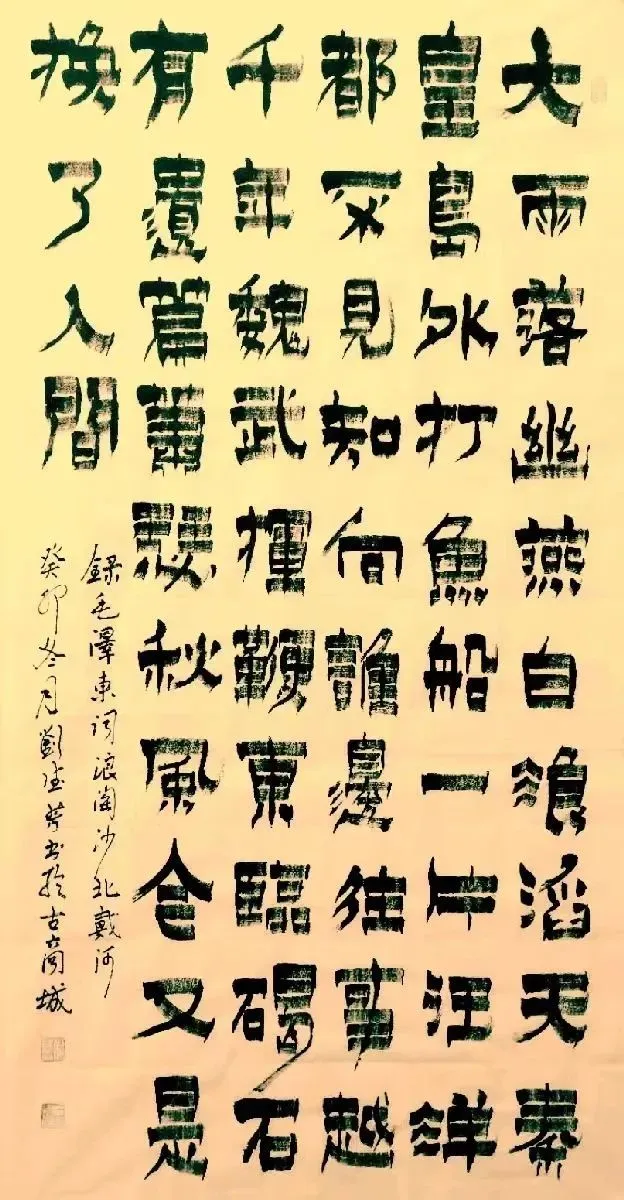 大雨落幽燕白浪滔天秦
皇島外打魚船一片汪洋
都不見知向誰邊往事越
千年魏武揮鞭東臨碣石
有遺篇蕭瑟秋風今又是
換了人間
錄毛澤東詞浪淘沙北戴河
癸卯冬月劉书於古商城